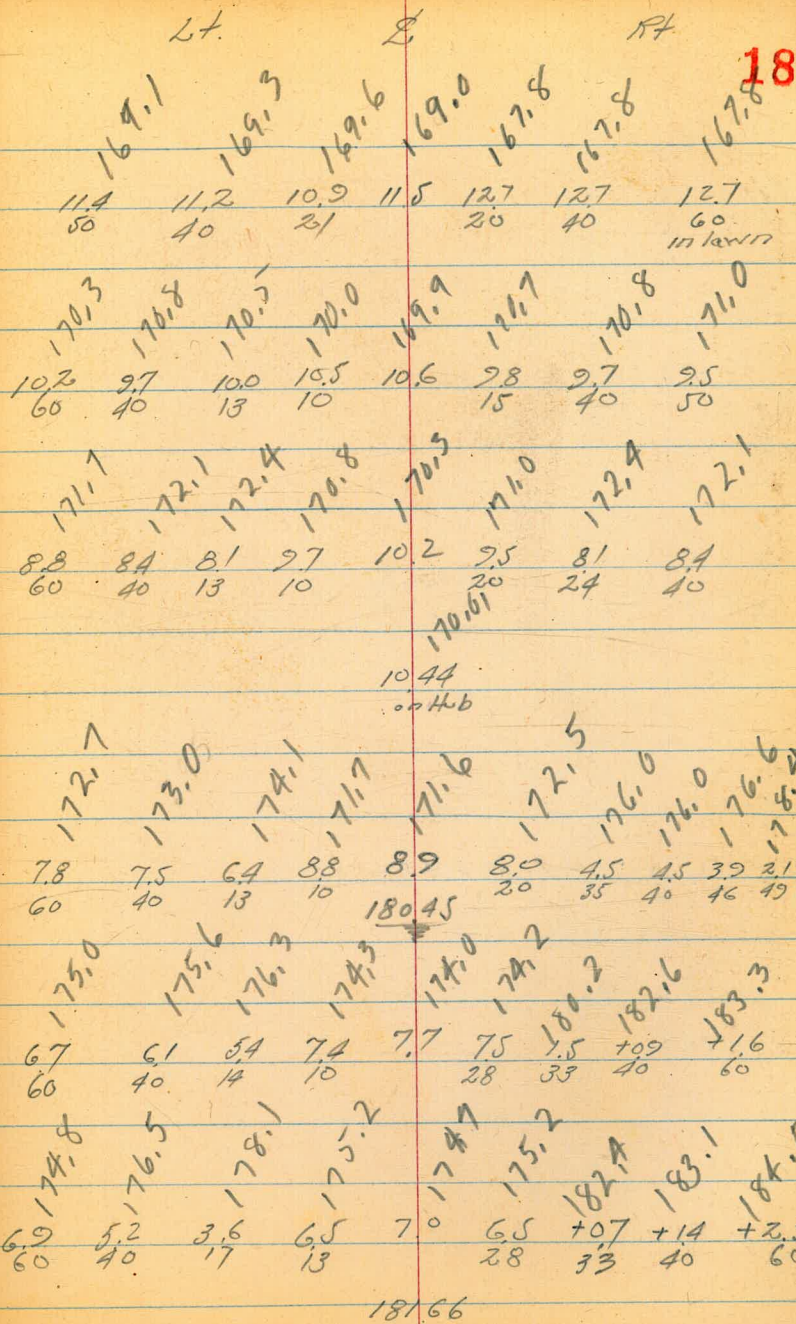 Lt. ℄ Rt
18
169.1 169.3 169.6 169.0 167.8 167.8 167.8
11.4 11.2 10.9 11.5 12.7 12.7 12.7
50 40 21 20 40 60
in lawn
170.3 170.8 170.5 170.0 169.9 170.8 171.0
10.2 9.7 10.0 10.5 10.6 9.8 9.7 9.5
60 40 13 10 15 40 50
171.7 172.1 172.4 170.8 170.3 171.0 172.4 172.1
8.8 8.4 8.1 9.7 10.2 9.5 8.1 8.4
60 40 13 10 20 24 40
170.01
10.44
on Hub
172.7 173.0 174.1 171.7 171.6 172.5 176.0 176.0 176.6
7.8 7.5 6.4 8.8 8.9 8.0 4.5 4.5 3.9 2.1
60 40 13 10 20 35 40 46 49
180.45
175.0 175.6 176.3 174.3 174.0 174.2 180.2 182.6 183.3
6.7 6.1 5.4 7.4 7.7 7.5 1.5 +0.9 +1.6
60 40 14 10 28 33 40 60
174.8 176.5 178.1 175.2 174.7 175.2 182.4 183.1
6.9 5.2 3.6 6.5 7.0 6.5 +0.7 +1.4
60 40 17 13 28 33 40 60
181.66